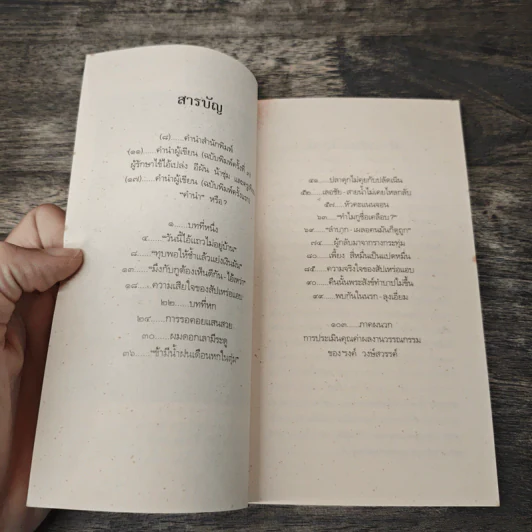 สารบัญ
(๘).....คำนำสำนักพิมพ์
(๑๑).....คำนำผู้เขียน (ฉบับพิมพ์ครั้งที่ ๓)
ผู้รักษาใช้ไอ้เปล่ง อีผัน น้าชุ่ม
(๑๗).....คำนำผู้เขียน (ฉบับพิมพ์ครั้งแรก)
"คำนำ" หรือ?
๑.....บทที่หนึ่ง
๔....."วันนี้ไอ้แถวไม่อยู่บ้าน"
๘....."ทุบพอให้ช้ำแล้วแย่งเงินมัน"
๑๓....."มึงกับกูต้องเห็นดีกัน-ไอ้เหว"
๑๘.....ความเสียใจของสัปเหร่อแอบ
๒๒.....บทที่หก
๒๔.....การรอคอยแสนสวย
๓๐.....ผมดอกเลามีระดู
๓๖....."ข้ามีน้ำฝนเดือนหกในตุ่ม"
๔๑.....ปลาดุกไม่คุยกับปลัดเผิน
๕๒.....เลอชัย-สายน้ำไม่เคยไหลกลับ
๕๗.....หัวคะแนนจอน
๖๓....."ทำไมกูชื่อเคลือบ?"
๖๙.....
๗๔.....ผู้กลับมาจากรางกระทุ่ม
๘๐.....เพี้ยง สี่หมื่นเป็นแปดหมื่น
๘๕.....ความจริงใจของสัปเหร่อแอบ
๙๐.....คืนนั้นพระสังข์ทำบาปไม่ขึ้น
๙๙.....พบกันในนรก-ลุงเอี่ยม
๑๐๓.....ภาคผนวก
การประเมินคุณค่าผลงานวรรณกรรม
ของ 'รงค์ วงษ์สวรรค์